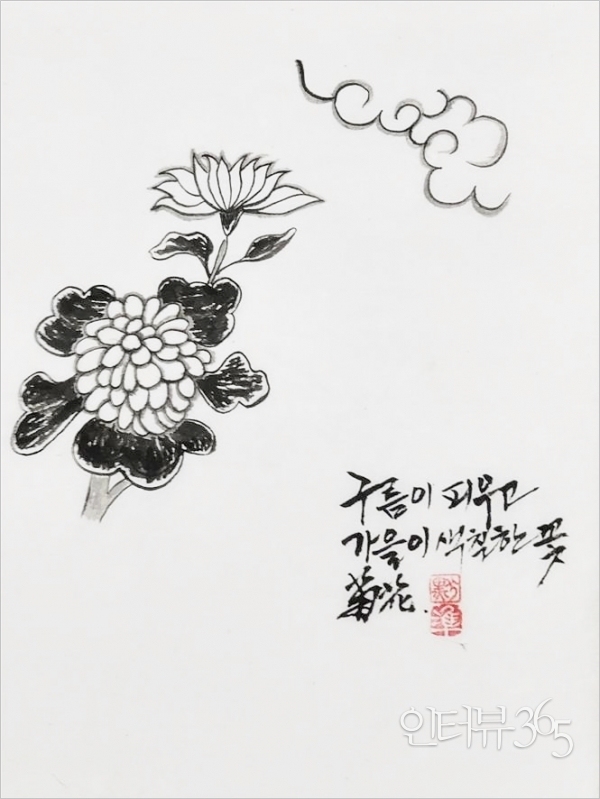 구름이 피우고
가을이 색칠한 꽃
菊花.
인터뷰365